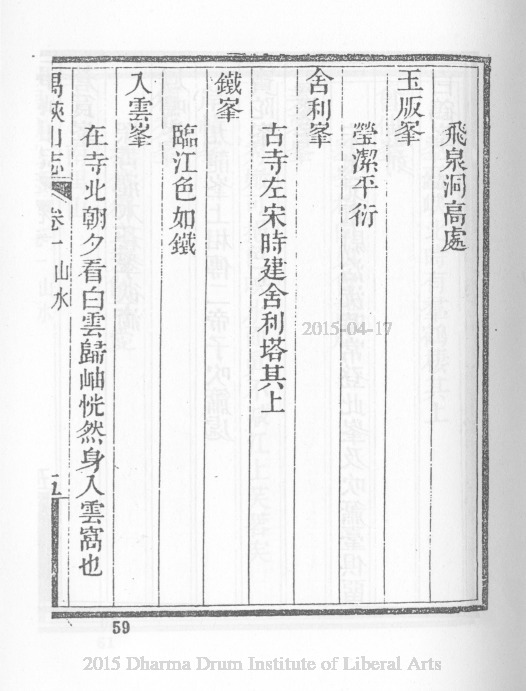 飛泉洞高處
玉版峯
瑩潔平衍
舍利峯
古寺左宋時建舍利塔其上
鐵峯
臨江色如鐵
入雲峯
在寺北朝夕看白雲歸岫恍然身入雲窩也
禺峽山志 卷一 山水 五
2015-04-17
59
2015 Dharma Drum Institute of Liberal Arts